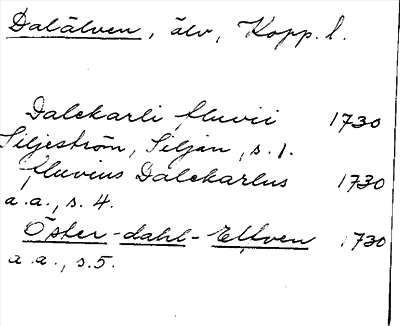 Dalälven, älv, Kopp. l.
Dalekarli fluvii 1730
Siljeström, Siljan, s. 1.
fluvius Dalekarlus 1730
a.a., s. 4.
Öster-dahl-Elfven 1730
a.a., s.5.